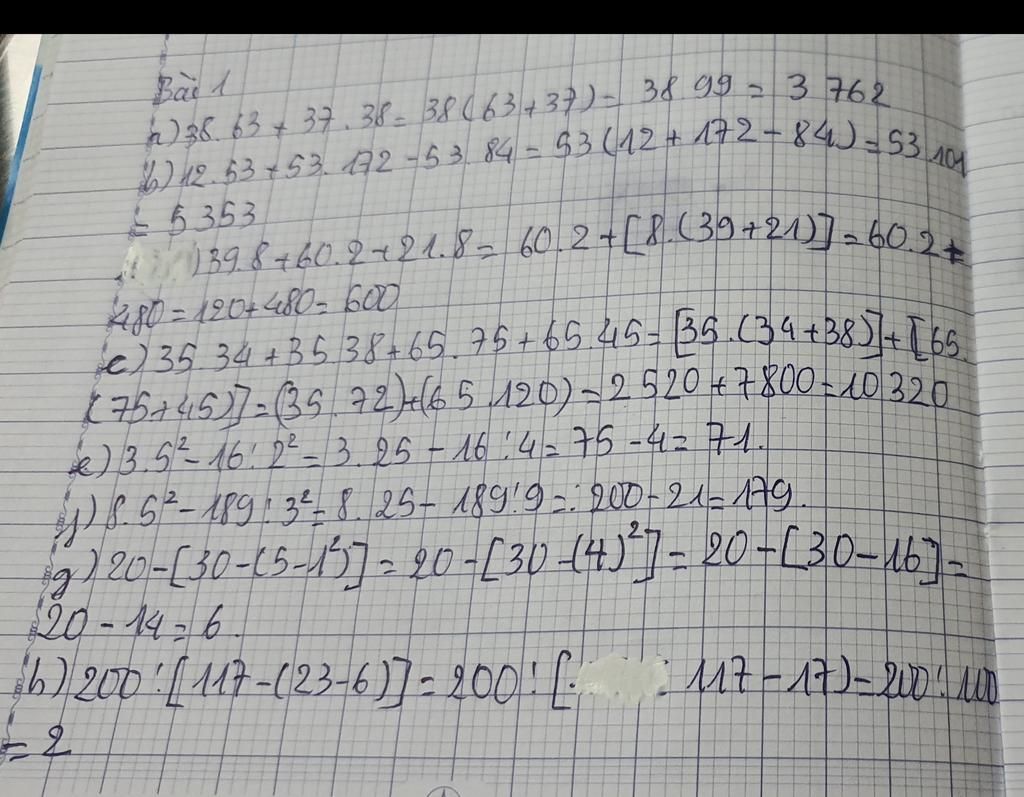 Bài 1
a) 38.63 + 37.38 = 38(63+37) = 38 99 = 3 762
b) 12.53 + 53.172 - 53 84 = 53(12 + 172 - 84) = 53.101
= 5353
) 39.8 + 60.2 + 21.8 = 60.2 + [8.(39+21)] = 60.2 +
480 = 120 + 480 = 600
c) 35.34 + 35.38 + 65.75 + 65.45 = [35.(34+38)] + [65.
(75+45)] = (35.72) + (65.120) = 2 520 + 7800 = 10 320
e) 3.5² - 16 : 2² = 3.25 - 16 : 4 = 75 - 4 = 71.
f) 8.5² - 189 : 3² = 8.25 - 189 : 9 = : 200 - 21 = 179.
g) 20 - [30 - (5 - 1²)] = 20 - [30 - (4)²] = 20 - [30 - 16] =
20 - 14 = 6.
h) 200 : [117 - (23 - 6)] = 200 : [ 117 - 17) = 200 : 100
= 2